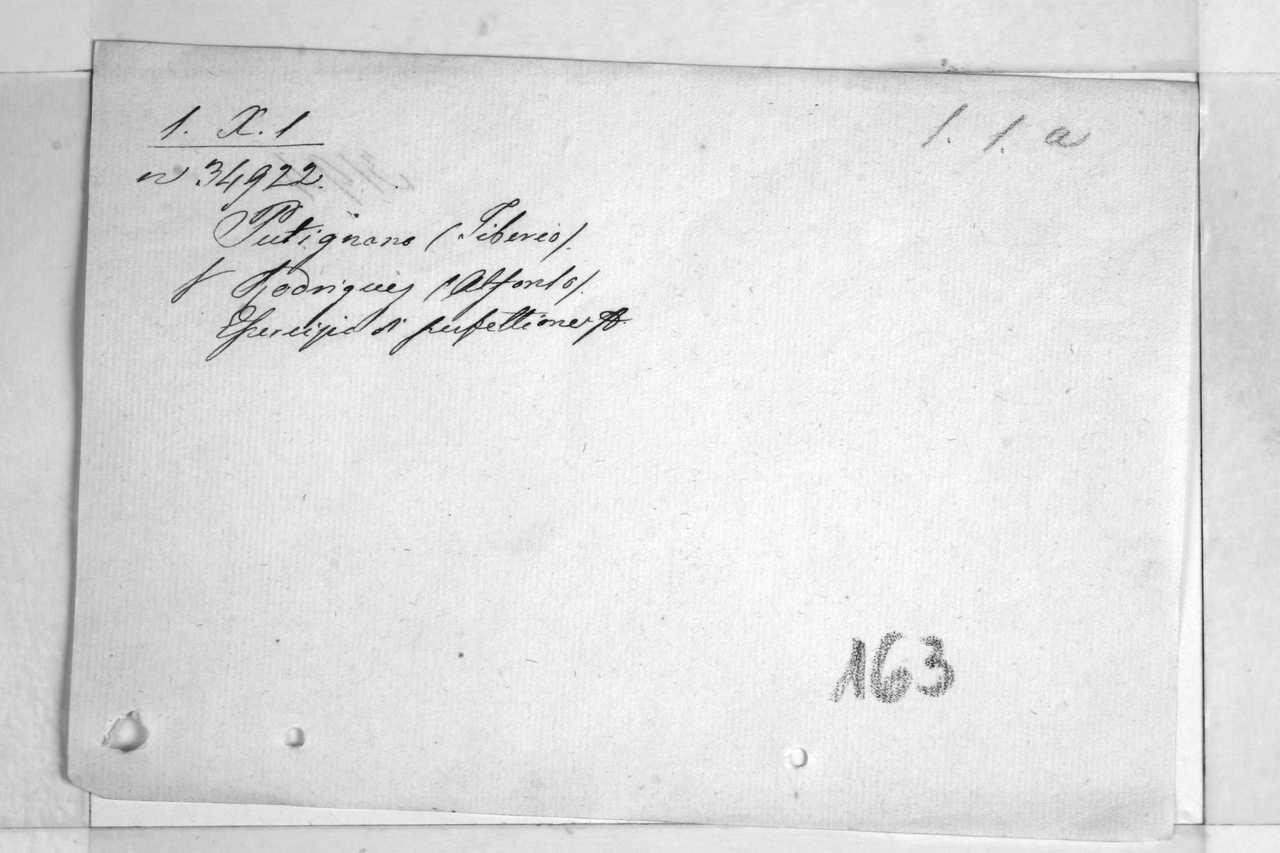 1. X. 1
1. 1. a
n 34922.
Putignano (Tiberio).
Rodriguez (Alfonso).
Esercizio di perfettione
163